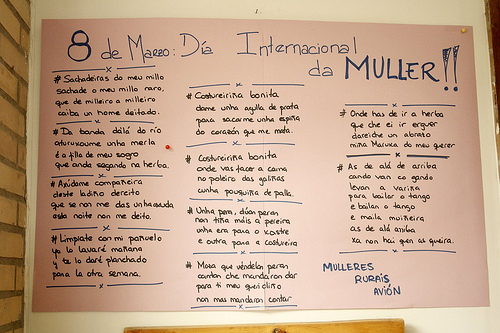 8 de Marzo: Día Internacional
da MULLER!!
# Sachadeiras do meu millo
sachade o meu millo raro,
que de milleiro a milleiro
caiba un home deitado.
# Da banda dalá do río
aturuxoume unha merla
é a filla de meu sogro
que anda sachando na herba.
# Axúdame compañeira
deste ladiño dereito
que se non me das unha axuda
esta noite non me deito.
# Limpiate con mi pañuelo
yo lo lavaré mañana
y te lo daré planchado
para la otra semana.
# Costureiriña bonita
dame unha agulla de prata
para sacarme unha espiña
do corazón que me mata.
# Costureiriña bonita
onde vas facer a cama
no poleiro das galiñas
cunha pouquiña de palla.
# Unha pera, dúas peras
non tiña máis a pereira
unha era para o xastre
e outra para a costureira
# Moza que vendelas peras
cantan che mandaron dar
para ti meu queridiño
non mas mandaron contar
# Onde has de ir a herba
que che ei ir erguer
dareiche un abrazo
miña Maruxa do meu querer
# As de alá de arriba
cando van co gando
levan a variña
para bailar o tango
e bailan o tango
e maila muiñeira
as de alá arriba
xa non hai quen as queira.
MULLERES
RURAIS
AVIÓN